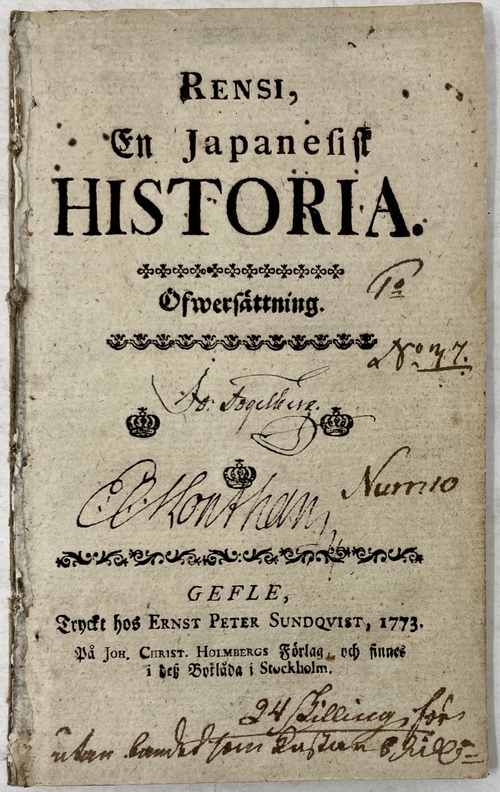 RENSI,
En Japanesiſk
HISTORIA.
Öfwerſättning.
No
Fogelberg.
Num:10
GEFLE,
Tryckt hos ERNST PETER SUNDQVIST, 1773.
På JOH. CHRIST. HOLMBERGS Förlag, och finnes
i deß Boklåda i Stockholm.
24 ſkilling för
utan bandet som kostar 8